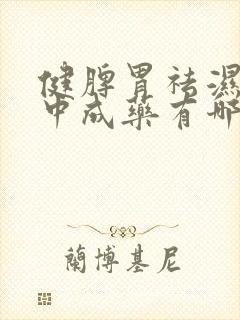 健脾胃祛濕
中成藥有哪
蘭博基尼